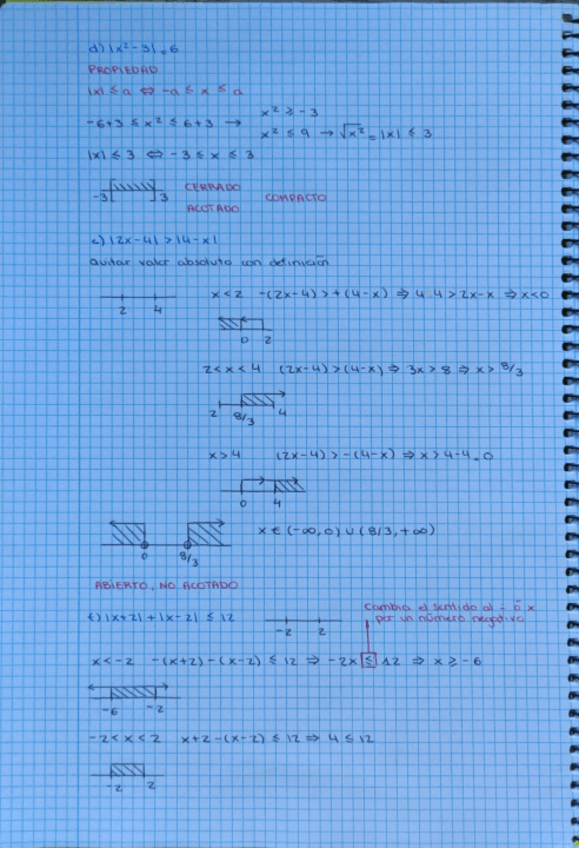 d) |x² - 3| = 6
PROPIEDAD
|x| ≤ a ⇔ -a ≤ x ≤ a
-6+3 ≤ x² ≤ 6+3 → x² ≥ -3
x² ≤ 9 → √x² = |x| ≤ 3
|x| ≤ 3 ⇔ -3 ≤ x ≤ 3
-3 3 CERRADO
ACOTADO COMPACTO
e) |2x-4| > |4-x|
Quitar valor absoluto con definición
2 4 x<2 -(2x-4) > +(4-x) ⇒ 4-4 > 2x-x ⇒ x<0
0 2
2<x<4 (2x-4) > (4-x) ⇒ 3x > 8 ⇒ x > 8/3
2 8/3 4
x>4 (2x-4) > -(4-x) ⇒ x > 4-4=0
0 4
0 8/3 x ∈ (-∞,0) ∪ (8/3, +∞)
ABIERTO, NO ACOTADO
f) |x+2| + |x-2| ≤ 12 -2 2
Cambia el sentido al - ó x
por un número negativo
x<-2 -(x+2)-(x-2) ≤ 12 ⇒ -2x ≤ 12 ⇒ x ≥ -6
-6 -2
-2<x<2 x+2-(x-2) ≤ 12 ⇒ 4 ≤ 12
-2 2